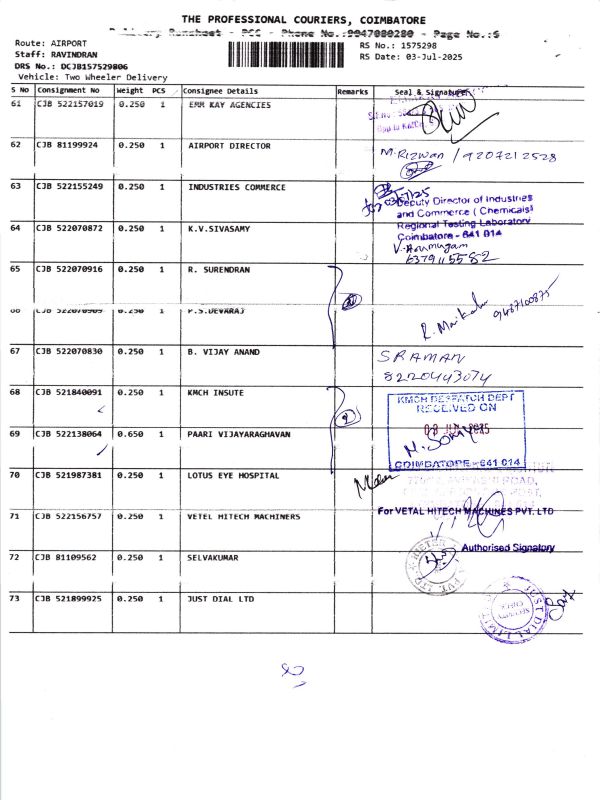 THE PROFESSIONAL COURIERS, COIMBATORE
Delivery Runsheet - PCC - Phone No.:9947080280 - Page No.:6
Route: AIRPORT
Staff: RAVINDRAN
DRS No.: DCJB157529806
Vehicle: Two Wheeler Delivery
RS No.: 1575298
RS Date: 03-Jul-2025
S No Consignment No Weight PCS Consignee Details Remarks Seal & Signature
61 CJB 522157019 0.250 1 ERM KAY AGENCIES
62 CJB 81199924 0.250 1 AIRPORT DIRECTOR M. RIZWAN / 9207212528
63 CJB 522155249 0.250 1 INDUSTRIES COMMERCE
Deputy Director of Industries
and Commerce (Chemicals)
Regional Testing Laboratory
Coimbatore - 641 014
64 CJB 522070872 0.250 1 K.V.SIVASAMY V. Arumugam
6379115582
65 CJB 522070916 0.250 1 R. SURENDRAN
66 CJB 522070909 0.250 1 P.S.DEVARAJ 9487100875
67 CJB 522070830 0.250 1 B. VIJAY ANAND S RAMAN
8220443074
68 CJB 521840091 0.250 1 KMCH INSUTE 2
KMCH DESPATCH DEPT
RECEIVED ON
COIMBATORE - 641 014
69 CJB 522138064 0.650 1 PAARI VIJAYARAGHAVAN
70 CJB 521987381 0.250 1 LOTUS EYE HOSPITAL
71 CJB 522156757 0.250 1 VETEL HITECH MACHINERS
For VETAL HITECH MACHINES PVT. LTD
Authorised Signatory
72 CJB 81109562 0.250 1 SELVAKUMAR
73 CJB 521899925 0.250 1 JUST DIAL LTD
JUST DIAL LIMITED
SECURITY